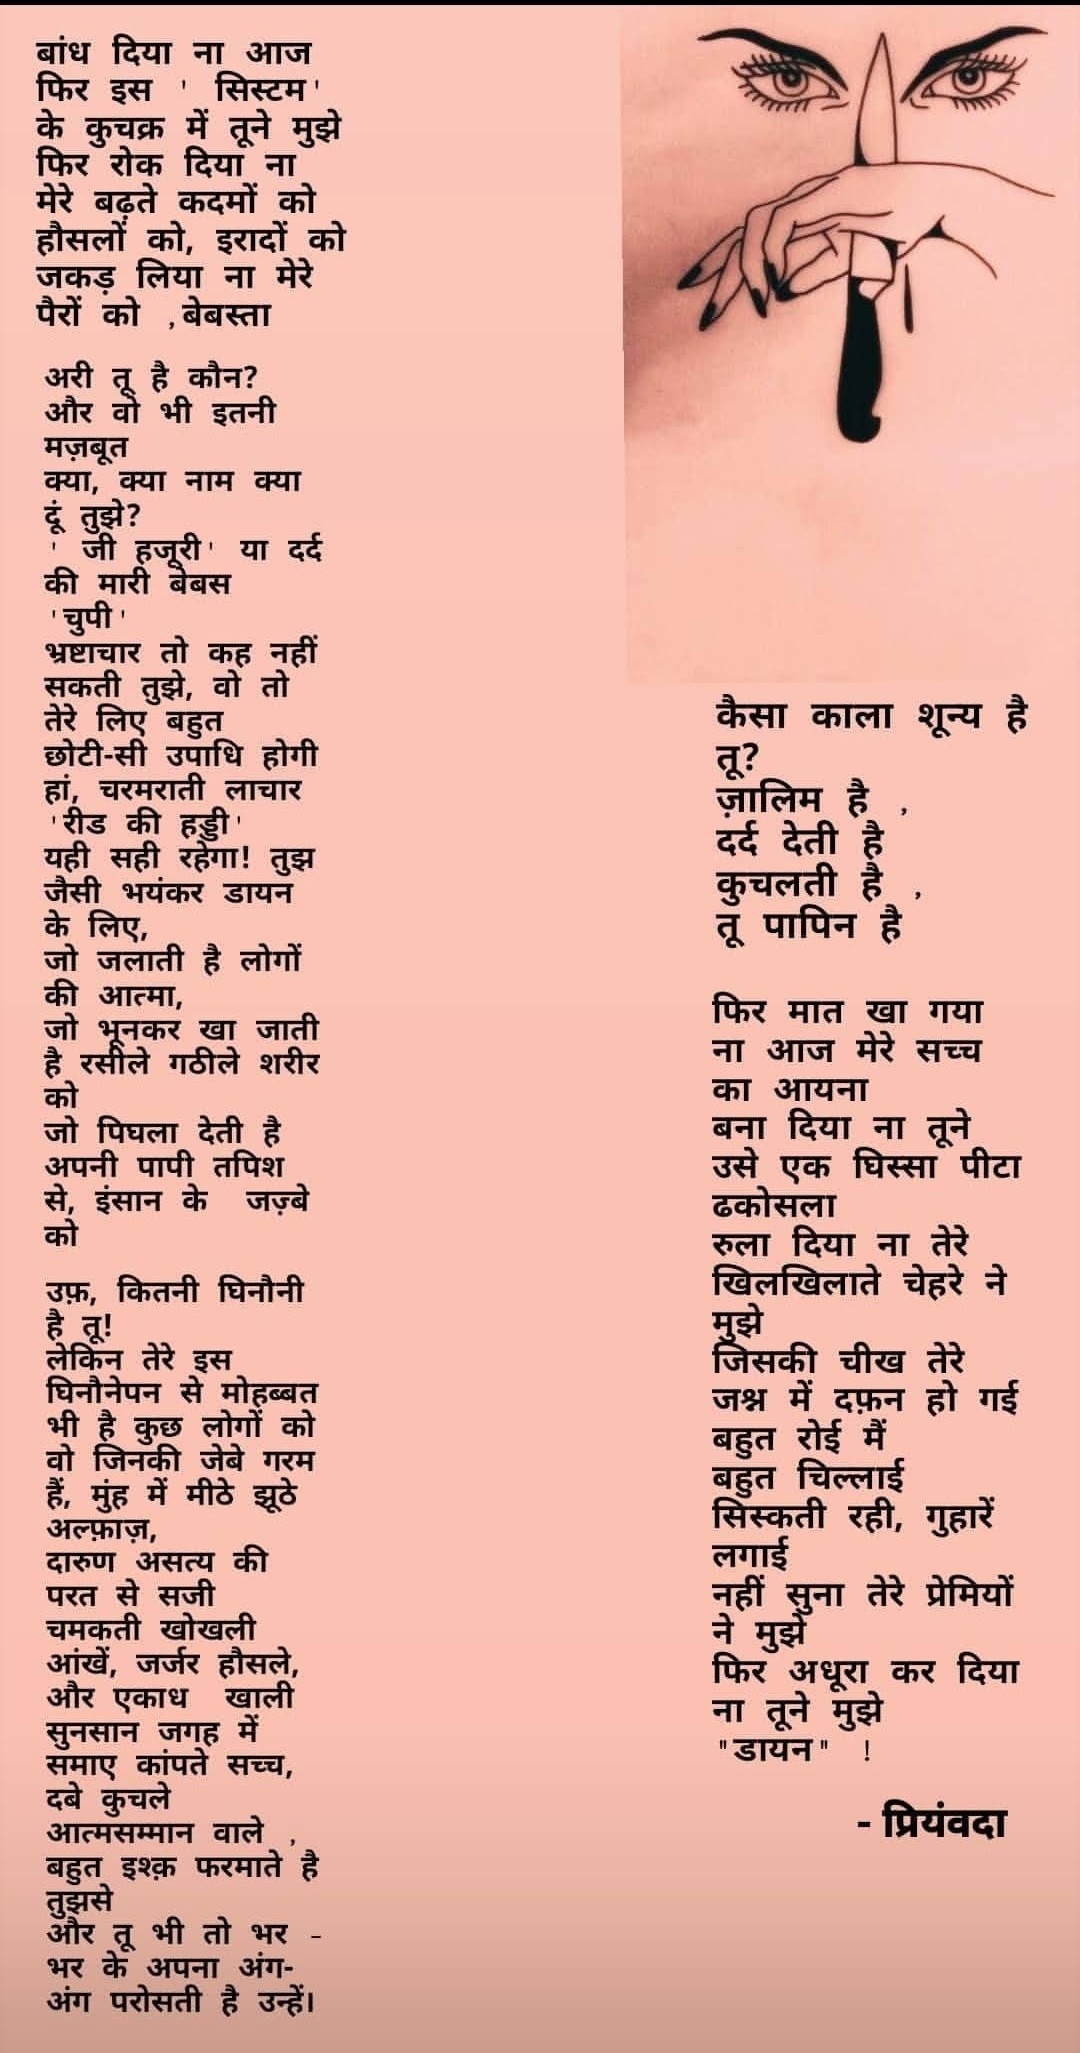 बांध दिया ना आज
फिर इस ' सिस्टम'
के कुचक्र में तूने मुझे
फिर रोक दिया ना
मेरे बढ़ते कदमों को
हौसलों को, इरादों को
जकड़ लिया ना मेरे
पैरों को ,बेबस्ता
अरी तू है कौन?
और वो भी इतनी
मज़बूत
क्या, क्या नाम क्या
दूं तुझे?
' जी हजूरी' या दर्द
की मारी बेबस
'चुपी'
भ्रष्टाचार तो कह नहीं
सकती तुझे, वो तो
तेरे लिए बहुत
छोटी-सी उपाधि होगी
हां, चरमराती लाचार
'रीड की हड्डी'
यही सही रहेगा! तुझ
जैसी भयंकर डायन
के लिए,
जो जलाती है लोगों
की आत्मा,
जो भूनकर खा जाती
है रसीले गठीले शरीर
को
जो पिघला देती है
अपनी पापी तपिश
से, इंसान के जज़्बे
को
उफ़, कितनी घिनौनी
है तू!
लेकिन तेरे इस
घिनौनेपन से मोहब्बत
भी है कुछ लोगों को
वो जिनकी जेबे गरम
हैं, मुंह में मीठे झूठे
अल्फ़ाज़,
दारुण असत्य की
परत से सजी
चमकती खोखली
आंखें, जर्जर हौसले,
और एकाध खाली
सुनसान जगह में
समाए कांपते सच्च,
दबे कुचले
आत्मसम्मान वाले ,
बहुत इश्क़ फरमाते है
तुझसे
और तू भी तो भर -
भर के अपना अंग-
अंग परोसती है उन्हें।
कैसा काला शून्य है
तू?
ज़ालिम है ,
दर्द देती है
कुचलती है ,
तू पापिन है
फिर मात खा गया
ना आज मेरे सच्च
का आयना
बना दिया ना तूने
उसे एक घिस्सा पीटा
ढकोसला
रुला दिया ना तेरे
खिलखिलाते चेहरे ने
मुझे
जिसकी चीख तेरे
जश्न में दफ़न हो गई
बहुत रोई मैं
बहुत चिल्लाई
सिस्कती रही, गुहारें
लगाई
नहीं सुना तेरे प्रेमियों
ने मुझे
फिर अधूरा कर दिया
ना तूने मुझे
"डायन" !
- प्रियंवदा